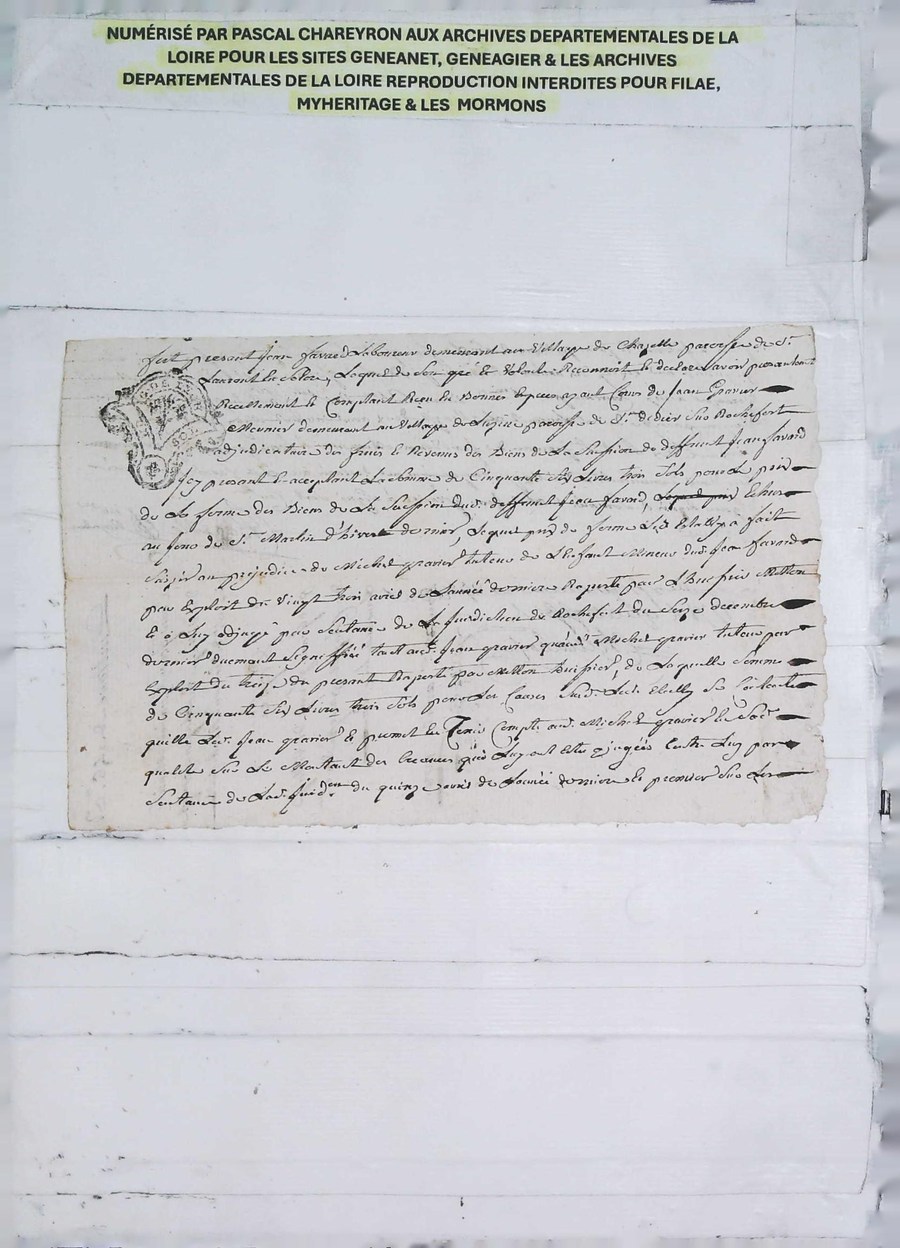 NUMÉRISÉ PAR PASCAL CHAREYRON AUX ARCHIVES DEPARTEMENTALES DE LA
LOIRE POUR LES SITES GENEANET, GENEAGIER & LES ARCHIVES
DEPARTEMENTALES DE LA LOIRE REPRODUCTION INTERDITES POUR FILAE,
MYHERITAGE & LES MORMONS
fut presant Jean favard Laboureur demeurant au Village de Chazelle paroisse de St
Laurent la Solée, Lequel de son gré et Volonté Reconnoit et declare avoir presantemt
Reellement et Comptant Reçu en Bonnes Especes ayant Cours de Jean Gravier
Meunier demeurant au Village de paroisse de St didier sur Rochefort
adjudicataire des fruis et Revenus des Biens de La Suession de deffunt Jean favard
Icy presant et acceptant La Somme de Cinquante Six Livres trois Sols pour Le prix
de La ferme des Biens de La Suession dud. deffunt Jean favard,
au jour de St Martin d'hivert dernier, Lequel prix de ferme Led. a fait
Saisir au prejudice de Michel gravier tuteur de L'Enfant Mineur dud. Jean favard
par Exploit du Vingt trois avril de L'année derniere Raporté par L'huissier
Et à Luy adjugé par Sentance de La Juridiction de Rochefort du Seize decembre
dernier duemant Signiffiée tant aud. Jean gravier qu'aud. Michel gravier tuteur par
Exploit du treize du presant Raporté par huissier, de Laquelle Somme
de Cinquante Six Livres trois Sols pour Les Causes Led. Se Contente
quitte Led. Jean gravier Et promet En Tenir Compte aud. Michel gravier En Sad.
qualité Sur Le Montant des Creances qui Luy ont Eté ajugées Contre Luy par
Sentance de Lad. Juridon du quinze avril de L'année derniere Et premier Sur Les